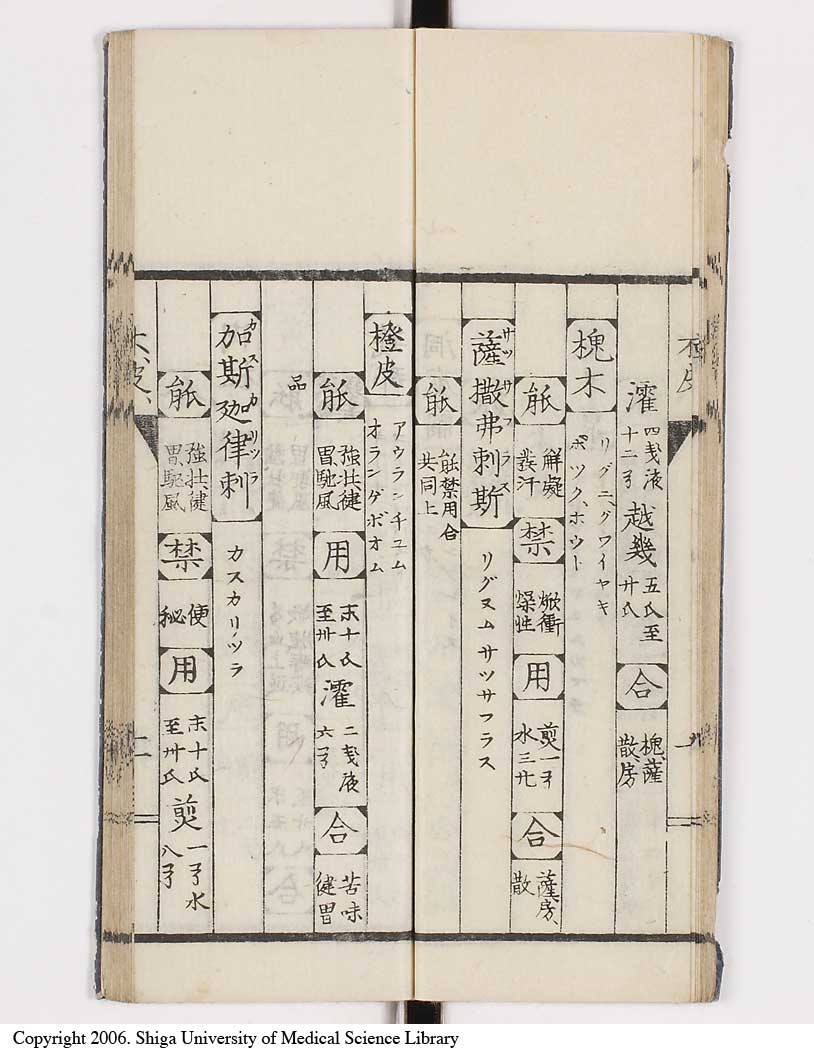 濯 四戔液十二ヲ 越幾 五氏至廿氏 合 槐薩散房
槐木 リグニ、グワイヤキ
ポツク、ホウト
能 解凝發汗 禁 焮衝燥性 用 煎一ヲ水三 合 薩房、散
薩撒弗剌斯 サツサフラス リグヌム サツサフラス
能 能禁用合共同上
橙皮 アウランチユム
オランダボオム
能 強壮健胃馳風 用 末十氏至卅氏 濯 二戔液六ヲ 合 苦味健胃
品
加斯加律剌 カスカリツラ カスカリツラ
能 強壮健胃馳風 禁 便秘 用 末十氏至卅氏 煎 一ヲ水八ヲ
Copyright 2006. Shiga University of Medical Science Library